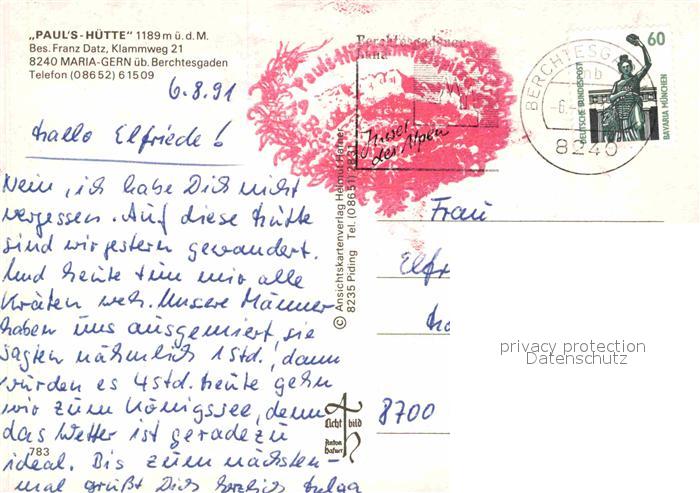 „PAUL'S-HÜTTE" 1189 m ü. d. M.
Bes. Franz Datz, Klammweg 21
8240 MARIA-GERN üb. Berchtesgaden
Telefon (0 86 52) 6 15 09
6.8.91
Hallo Elfriede!
Nein, ich habe Dich nicht
vergessen. Auf diese Hütte
sind wir gestern gewandert.
Und heute tun mir alle
Kräten weh. Unsere Männer
haben uns ausgemiert, sie
sagten nähmlich 1 Std., dann
würden es 4 Std. heute gehn
wir zum Königssee, denn
das Wetter ist geradezu
ideal. Bis zum nächsten-
mal grüßt Dich herzlich Helga
783
© Ansichtskartenverlag Helmut Hafner
8235 Piding Tel. (0 86 51)
Licht bild
Anton
Hafner
Berchtesgadener
Jussel
der Alpen
BERCHTESGADEN
mb
-6.
8240
60
DEUTSCHE BUNDESPOST
BAVARIA MÜNCHEN
Frau
Elfr
8700
privacy protection
Datenschutz